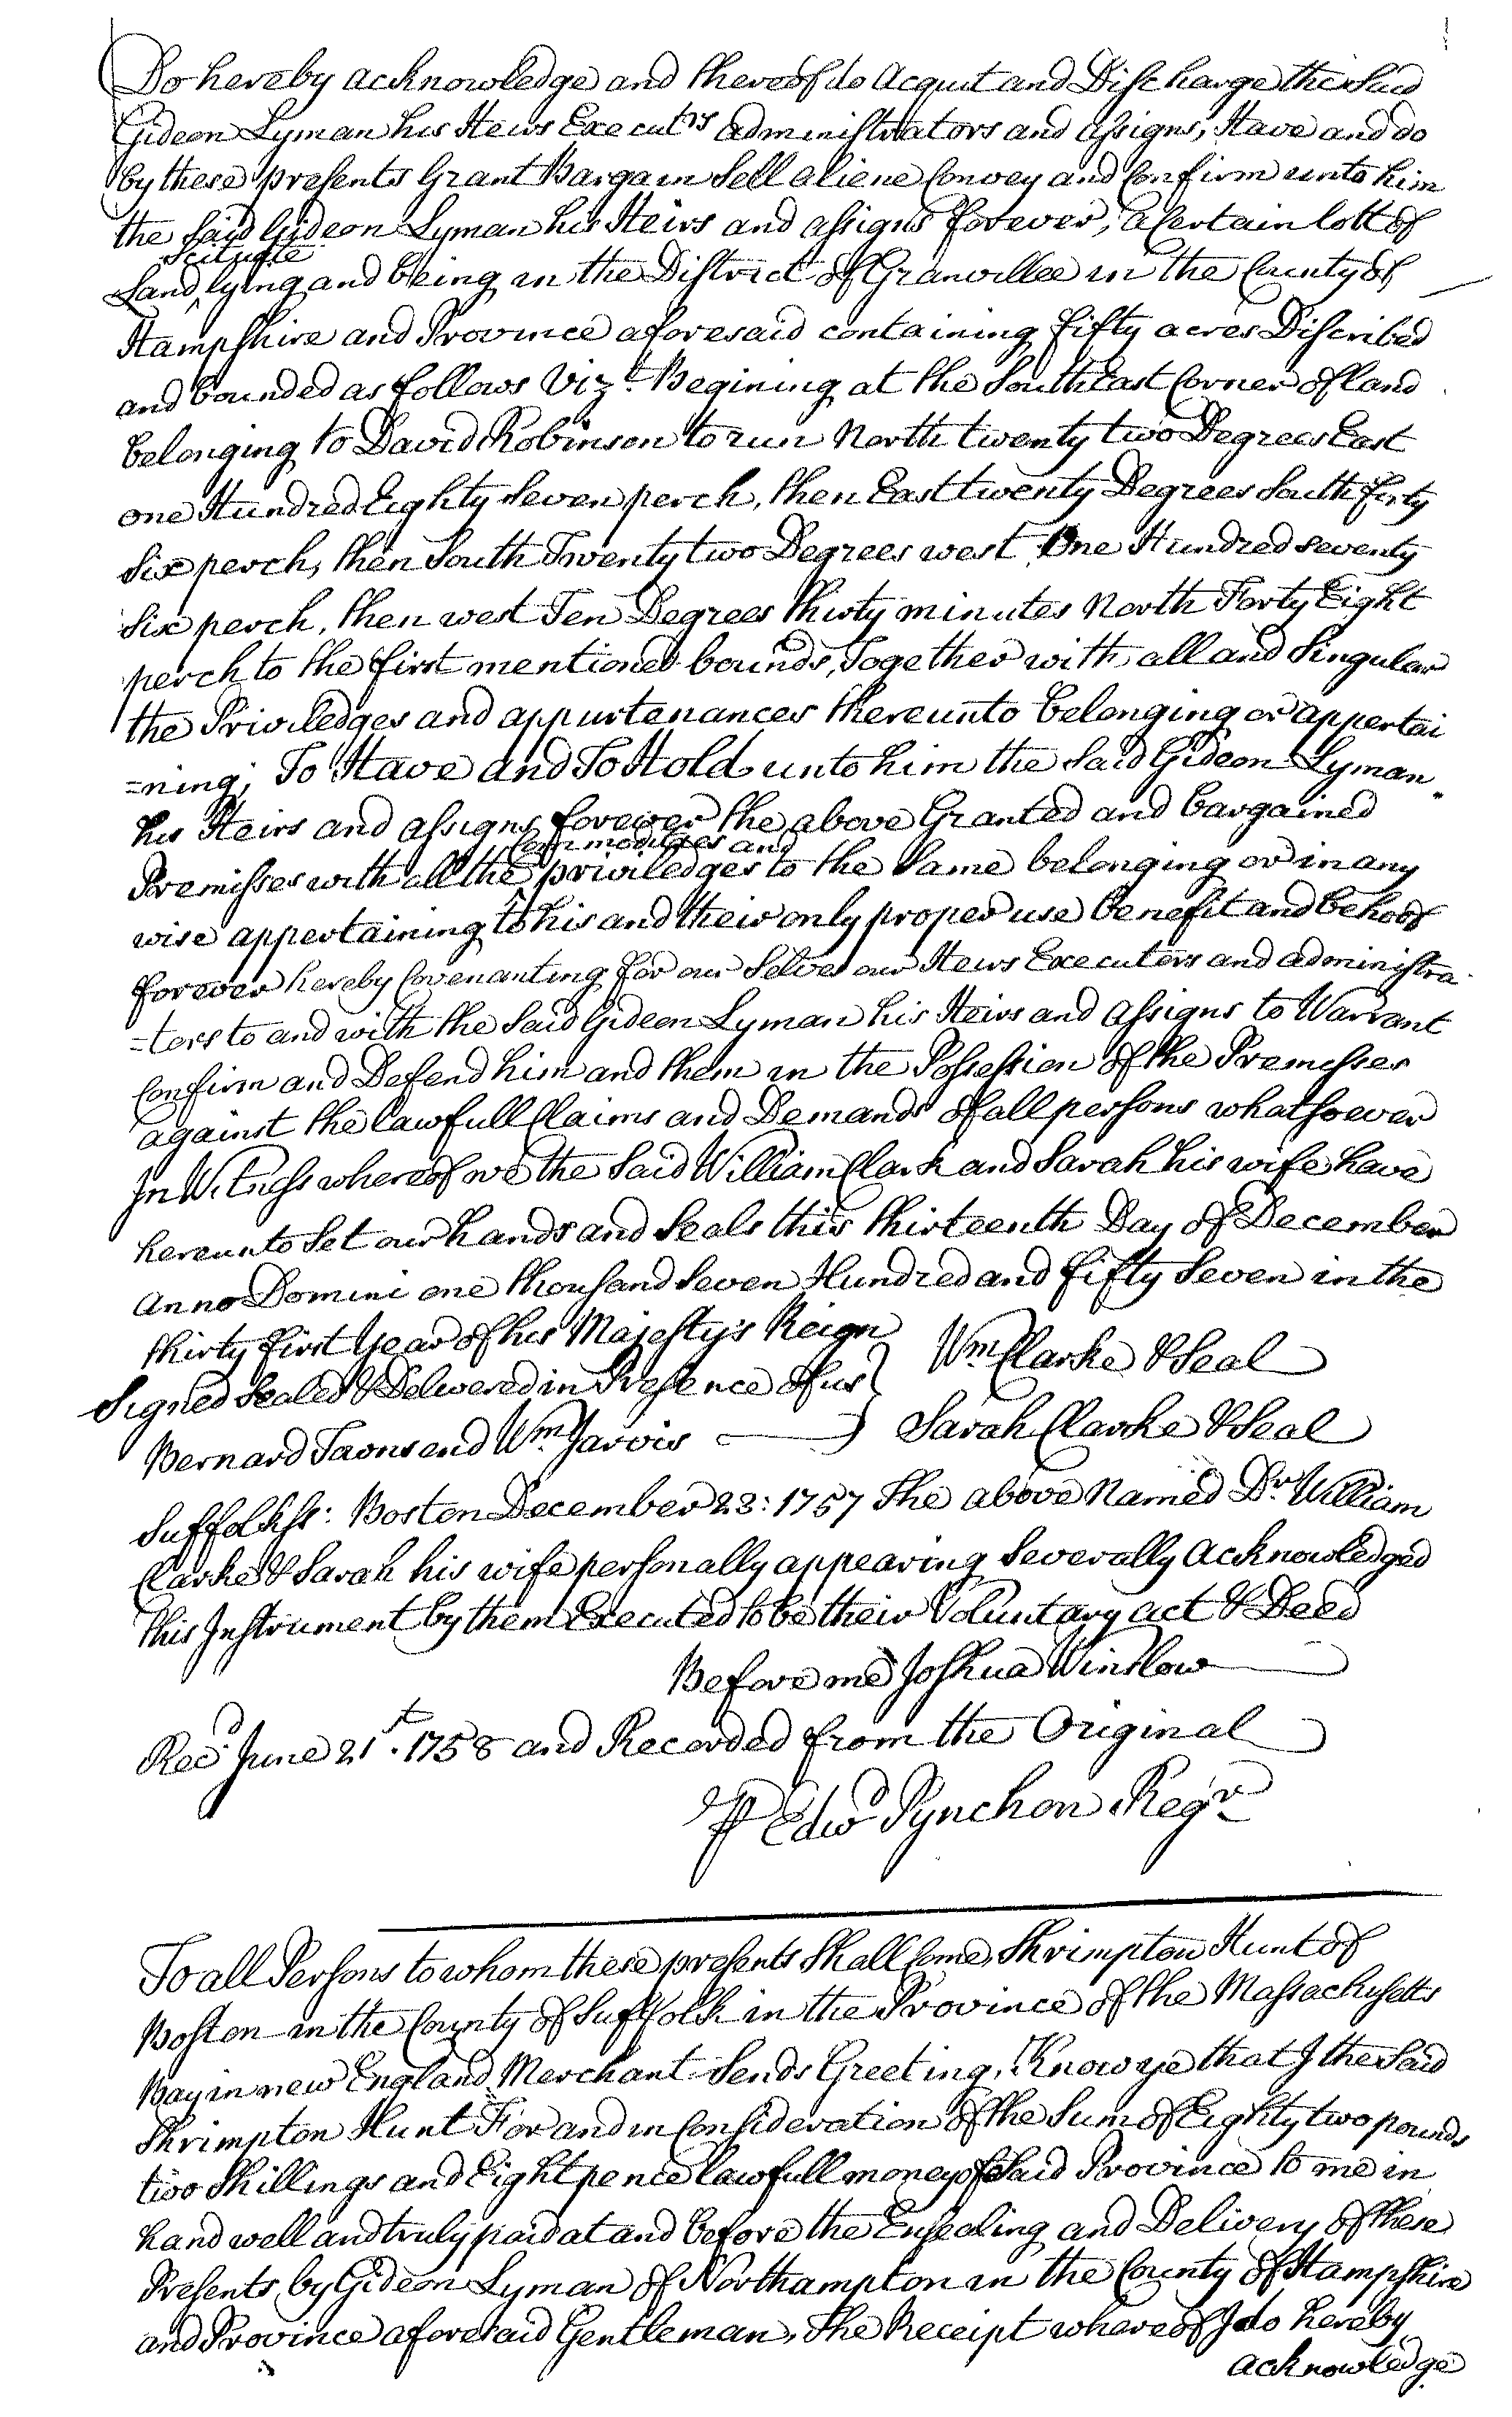 Do hereby acknowledge and thereof do Acquit and Discharge the said
Gideon Lyman his Heirs Execut.rs administrators and assigns, Have and do
by these presents Grant Bargain Sell aliene Convey and Confirm unto him
the said Gideon Lyman his Heirs and assigns forever, a Certain lott of
Scituate
Land ‸ lying and being in the District of Granvillee in the County of
Hampshire and Province aforesaid containing fifty acres Discribed
and bounded as follows Vizt Begining at the South East Corner of land
belonging to David Robinson to run North twenty two Degrees East
one Hundred Eighty Seven perch, then East twenty Degrees South forty
Six perch, then South Twenty two Degrees west One Hundred seventy
Six perch, then west Ten Degrees thirty minutes North Forty Eight
perch to the first mentioned bounds, Together with all and Singular
the Priviledges and appurtenances thereunto belonging or appertai
=ning; To Have and To Hold unto him the Said Gideon Lyman
his Heirs and assigns forever the above Granted and bargained
Commodityes and
Premisses with all the ‸ priviledges to the Same belonging or in any
wise appertaining to his and their only proper use benefit and behoof
forever hereby Covenanting for our Selves our Heirs Executors and administra
=tors to and with the Said Gideon Lyman his Heirs and assigns to Warrant
Confirm and Defend him and them in the Possession of the Premesses
against the lawfull Claims and Demands of all persons whatsoever
In Witness whereof we the Said William Clark and Sarah his wife have
hereunto Set our hands and Seals this thirteenth Day of December
Anno Domini one thousand Seven Hundred and fifty Seven in the
thirty first Year of his Majesty's Reign
Wm Clarke & Seal
Signed Sealed & Delivered in Presence of us
Bernard Taonsend Wm Jarvis
Sarah Clarke & Seal
Suffolk ss: Boston December 23: 1757 The above Named Dr. William
Clarke & Sarah his wife personally appearing Severally Acknowledged
this Instrument by them Executed to be their Voluntary act & Deed
Before me Joshua Winslow
Recd June 21st. 1758 and Recorded from the Original
P Edwd Pynchon Regr
To all Persons to whom these presents Shall Come, Shrimpton Hunt of
Boston in the County of Suffolk in the Province of the Massachusetts
Bay in new England Merchant Sends Greeting, Know ye that I the Said
Shrimpton Hunt For and in Consideration of the Sum of Eighty two pounds
two Shillings and Eight pence lawfull money of Said Province to me in
hand well and truly paid at and before the Ensealing and Delivery of these
Presents by Gideon Lyman of Northampton in the County of Hampshire
and Province aforesaid Gentleman, the Receipt whereof I do hereby
acknowledge